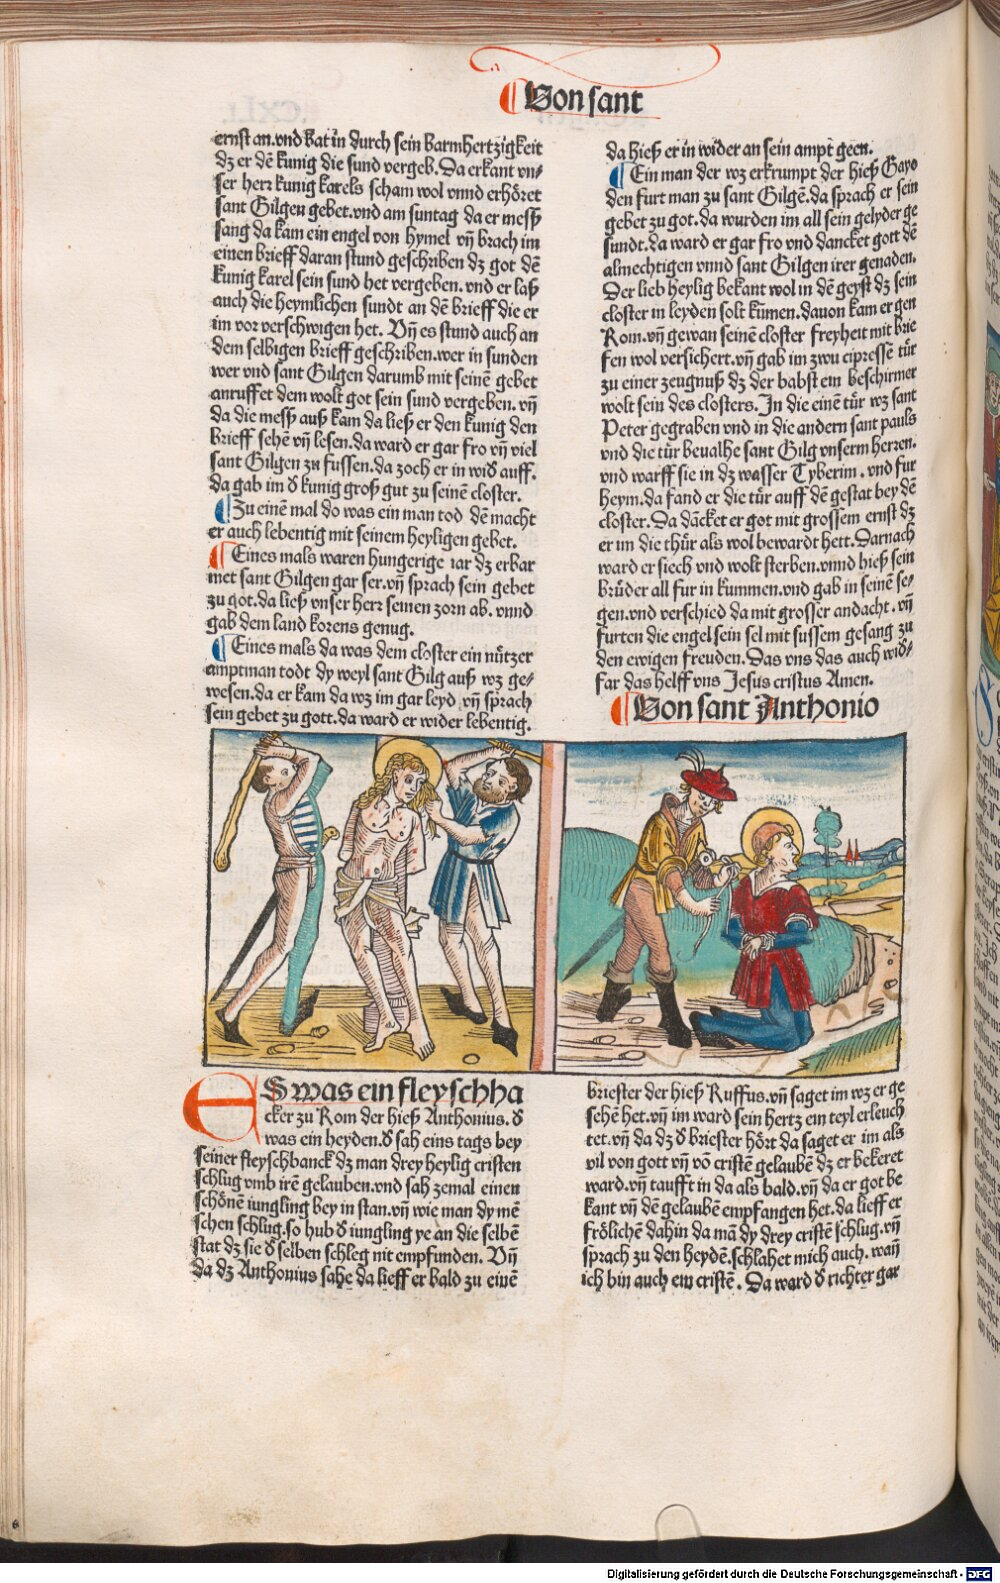 Von sant
ernst an.vnd bat in durch sein barmhertzigkeit
dz er dē kunig die sund vergeb. Da erkant vn⸗
ser herr kunig karels scham wol vnnd erhöret
sant Gilgen gebet.vnd am suntag da er mesß
sang da kam ein engel von hymel vñ brach im
einen brieff daran stund geschriben dz got dē
kunig karel sein sund het vergeben. vnd er laß
auch die heymlichen sundt an dē brieff die er
im vor verschwigen het. Vñ es stund auch an
dem selbigen brieff geschriben.wer in sunden
wer vnd sant Gilgen darumb mit seinē gebet
anruffet dem wolt got sein sund vergeben. vñ
da die mesß auß kam da ließ er den kunig den
brieff sehē vñ lesen.da ward er gar fro vñ viel
sant Gilgen zu fussen.da zoch er in wiď auff.
da gab im ď kunig groß gut zu seinē closter.
Zu einē mal do was ein man tod dē macht
er auch lebentig mit seinem heyligen gebet.
Eines mals waren hungerige iar dz erbar
met sant Gilgen gar ser.vñ sprach sein gebet
zu got.da ließ vnser herr seinen zorn ab. vnnd
gab dem land korens genug.
Eines mals da was dem closter ein nützer
amptman todt dy weyl sant Gilg auß wz ge⸗
wesen.da er kam da wz im gar leyd vñ sprach
sein gebet zu gott.da ward er wider lebentig.
da hieß er in wider an sein ampt geen.
Ein man der wz erkrumpt der hieß Gayo
den furt man zu sant Gilgē.da sprach er sein
gebet zu got.da wurden im all sein gelyder ge
sundt.da ward er gar fro vnd dancket gott dē
almechtigen vnnd sant Gilgen irer genaden.
Der lieb heylig bekant wol in dē geyst dz sein
closter in leyden solt kumen.dauon kam er gen
Rom.vñ gewan seinē closter freyheit mit brie
fen wol versichert.vñ gab im zwu cipressē tür
zu einer zeugnuß dz der babst ein beschirmer
wolt sein des closters. In die einē tür wz sant
Peter gegraben vnd in die andern sant pauls
vnd die tür beualhe sant Gilg vnserm herren.
vnd warff sie in dz wasser Tyberim. vnd fur
heym.da fand er die tür auff dē gestat bey dē
closter. Da dācket er got mit grossem ernst dz
er im die thür als wol bewardt hett.Darnach
ward er siech vnd wolt sterben.vnnd hieß sein
brüder all fur in kummen.vnd gab in seinē se⸗
gen.vnd verschied da mit grosser andacht. vñ
furten die engel sein sel mit sussem gesang zu
den ewigen freuden. Das vns das auch wid⸗
far das helff vns Jesus cristus Amen.
Von sant Anthonio
ES was ein fleyschha
cker zu Rom der hieß Anthonius. ď
was ein heyden.ď sah eins tags bey
seiner fleyschbanck dz man drey heylig cristen
schlug vmb irē gelauben.vnd sah zemal einen
schönē iungling bey in stan.vñ wie man dy mē
schen schlug.so hub ď iungling ye an die selbē
stat dz sie ď selben schleg nit empfunden. Vñ
da dz Anthonius sahe da lieff er bald zu einē
briester der hieß Ruffus.vñ saget im wz er ge
sehē het.vñ im ward sein hertz ein teyl erleuch
tet.vñ da dz ď briester hört da saget er im als
vil von gott vñ vō cristē gelaubē dz er bekeret
ward.vñ taufft in da als bald.vñ da er got be
kant vñ dē gelaubē empfangen het.da lieff er
frölichē dahin da mā dy drey cristē schlug.vñ
sprach zu den heydē.schlahet mich auch. wañ
ich bin auch ein cristē. Da ward ď richter gar
Digitalisierung gefördert durch die Deutsche Forschungsgemeinschaft - DFG